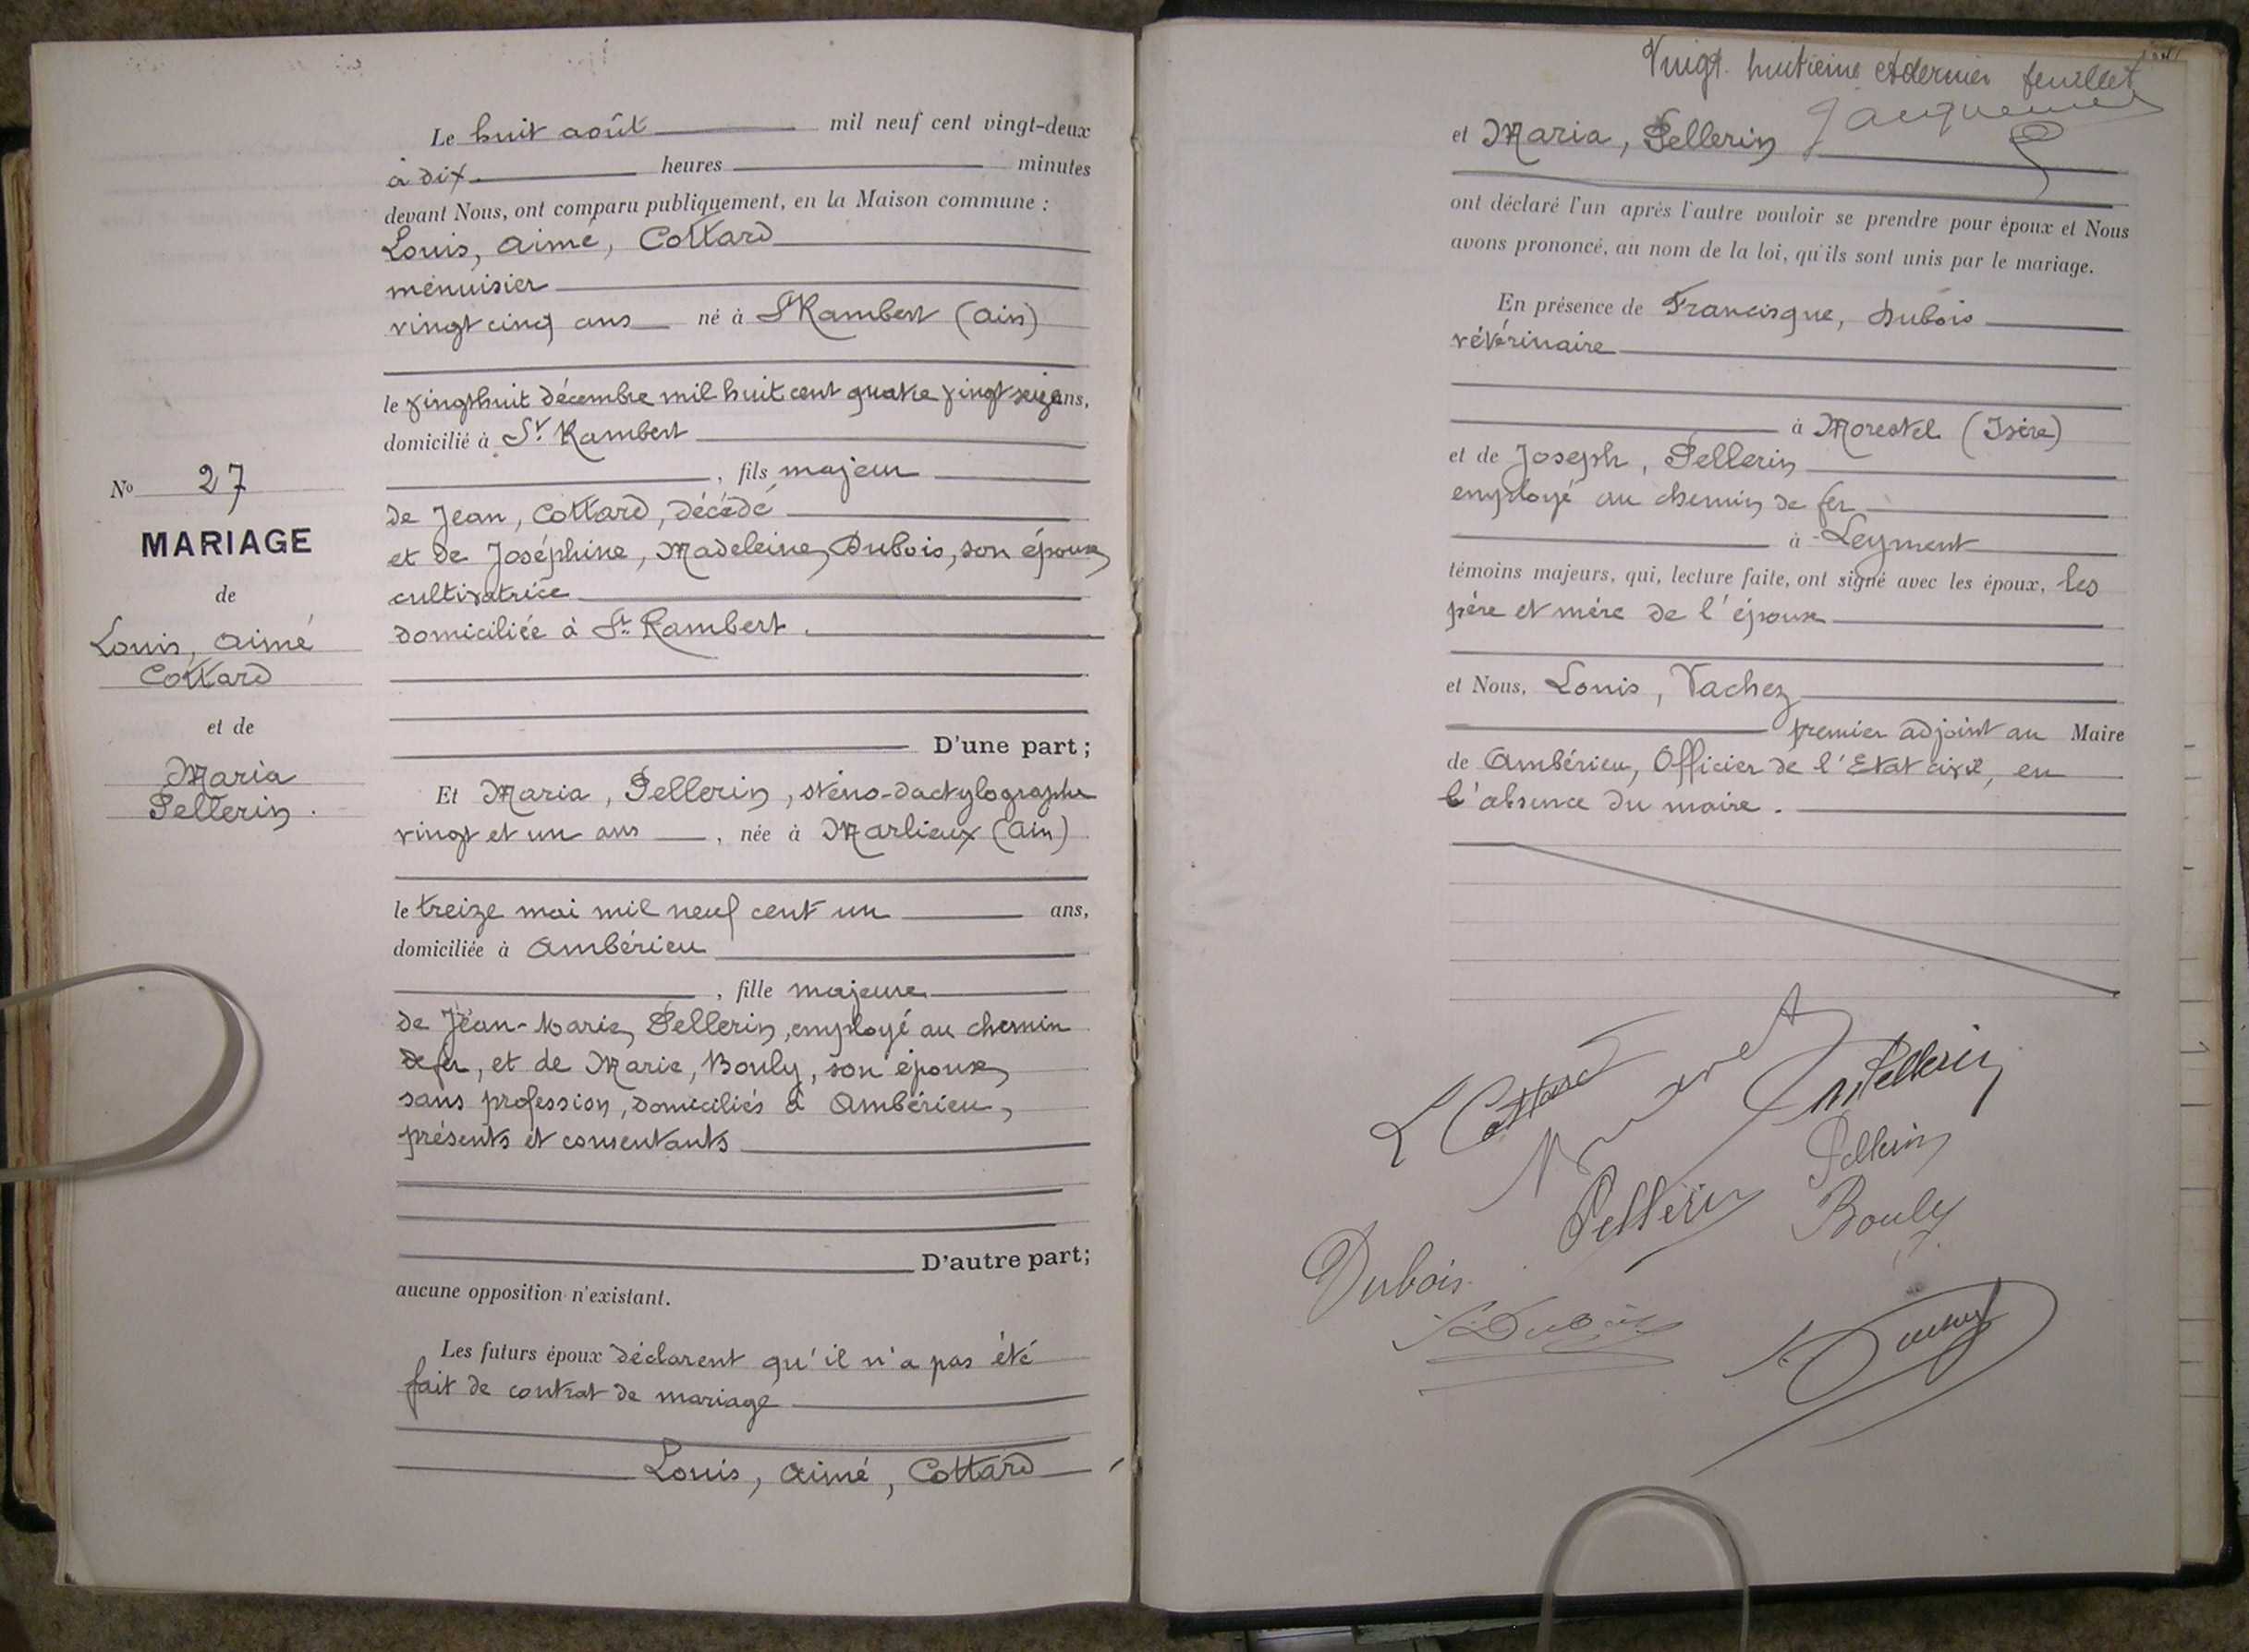 Le huit août mil neuf cent vingt-deux
à dix heures minutes
devant Nous, ont comparu publiquement, en la Maison commune :
Louis, Aimé, Cottard
ménuisier
vingt cinq ans né à St Rambert (Ain)
le vingthuit décembre mil huit cent quatre vingt seize ans,
domicilié à St Rambert
, fils majeur
de Jean, Cottard, décédé
et de Joséphine, Madeleine, Dubois, son épouse,
cultivatrice
domiciliée à St Rambert.
D'une part ;
No 27
MARIAGE
de
Louis, Aimé
Cottard
et de
Maria
Pellerin.
Et Maria, Pellerin, sténo-dactylographe
vingt et un ans , née à Marlieux (Ain)
le treize mai mil neuf cent un ans,
domiciliée à Ambérieu
, fille majeure
de Jean-Marie, Pellerin, employé au chemin
de fer, et de Marie, Bouly, son épouse,
sans profession, domiciliés à Ambérieu,
présents et consentants
D'autre part ;
aucune opposition n'existant.
Les futurs époux déclarent qu'il n'a pas été
fait de contrat de mariage
Louis, Aimé, Cottard
Vingt huitième et dernier feuillet
et Maria, Pellerin
ont déclaré l'un après l'autre vouloir se prendre pour époux et Nous
avons prononcé, au nom de la loi, qu'ils sont unis par le mariage.
En présence de Francisque, Dubois
vétérinaire
à Morestel (Isère)
et de Joseph, Pellerin
employé au chemin de fer
à Leyment
témoins majeurs, qui, lecture faite, ont signé avec les époux, les
père et mère de l'épouse
et Nous, Louis, Vachez
premier adjoint au Maire
de Ambérieu, Officier de l'Etat civil, en
l'absence du maire.
L Cottard
M Pellerin
Pellerin
Pellerin
Bouly
Dubois
F. Dubois